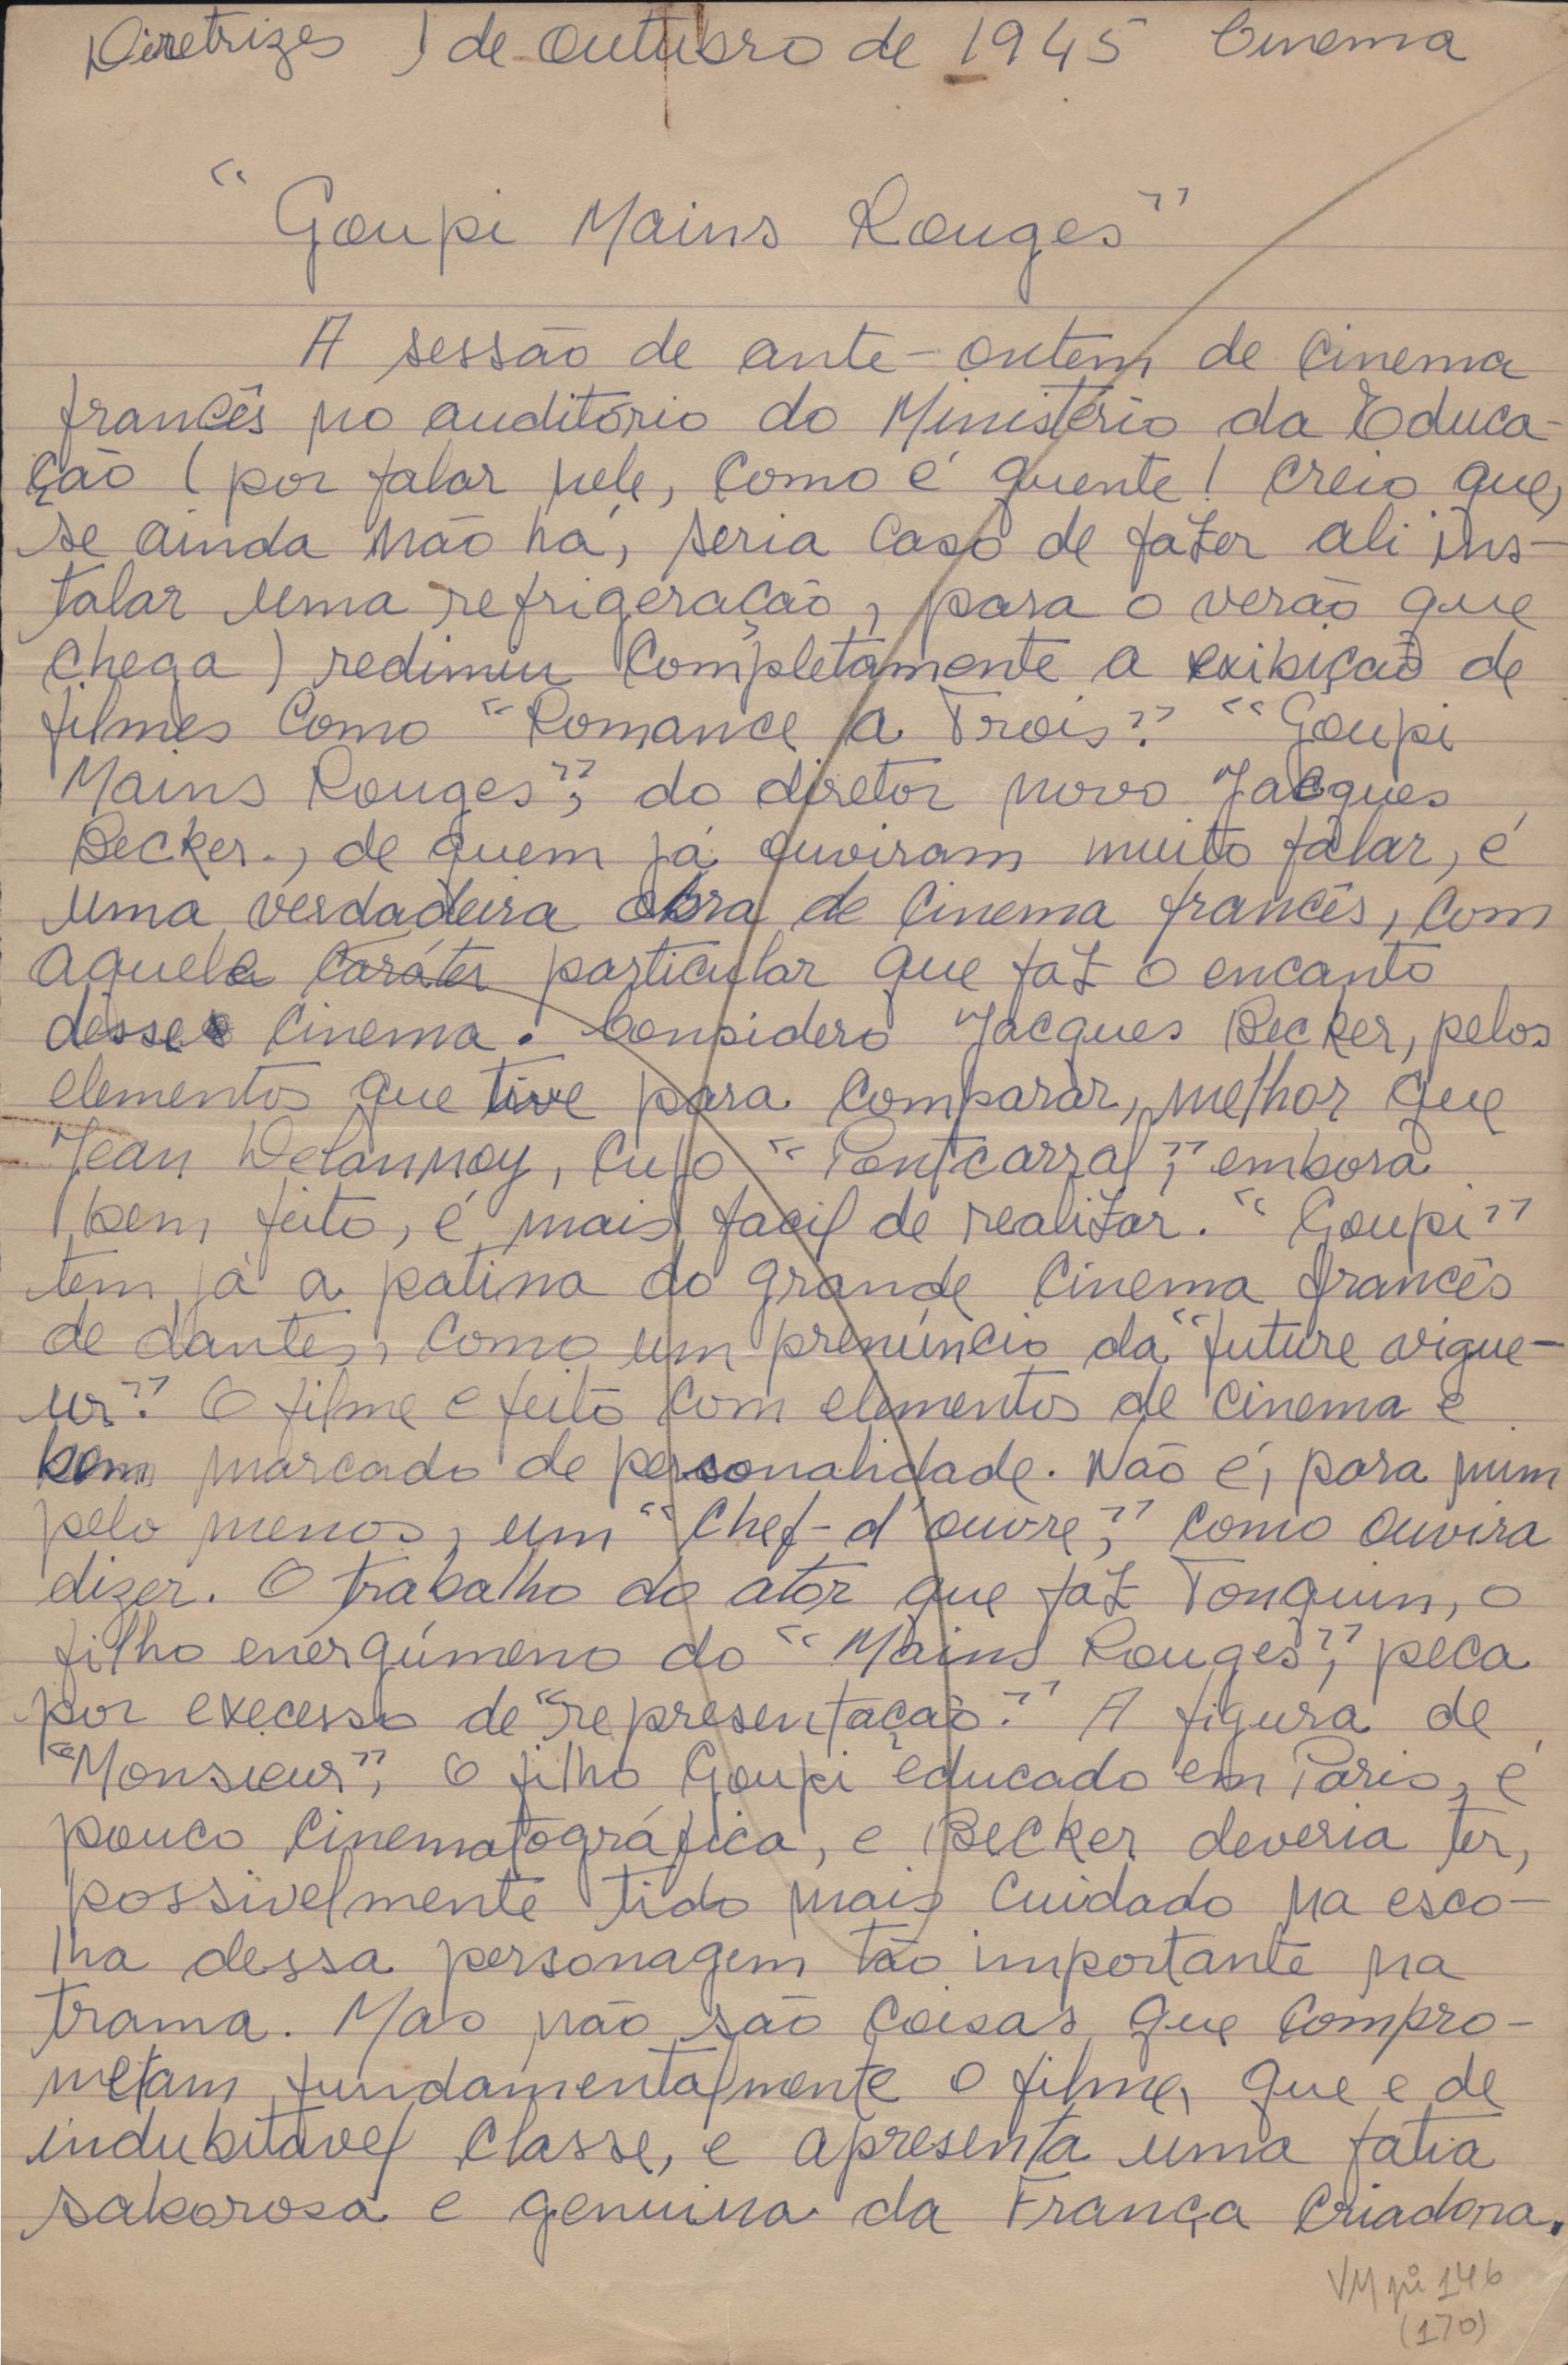 Diretrizes 1 de Outubro de 1945 Cinema
"Goupi Mains Rouges"
A sessão de ante-ontem de cinema
francês no auditório do Ministério da Educa-
ção (por falar nele, como é quente! creio que,
se ainda não há, seria caso de fazer ali ins-
talar uma refrigeração, para o verão que
chega) redimiu completamente a exibição de
filmes como "Romance a Trois". "Goupi
Mains Rouges", do diretor novo Jacques
Becker., de quem já ouviram muito falar, é
uma verdadeira obra de cinema francês, com
aquele caráter particular que faz o encanto
desse cinema. Considero Jacques Becker, pelos
elementos que tive para comparar, melhor que
Jean Delannoy, cujo "Pontcarral", embora
bem feito, é mais facil de realizar. "Goupi"
tem já a patina do grande cinema francês
de dantes, como um prenúncio da "future vigue-
ur". O filme e feito com elementos de cinema e
bem marcado de personalidade. Não é, para mim
pelo menos, um "chef-d'ouvre", como ouvira
dizer. O trabalho do ator que faz Tonquin, o
filho energúmeno do "Mains Rouges", peca
por execesso de "representação". A figura de
"Monsieur", o filho Goupi educado em Paris, é
pouco cinematográfica, e Becker deveria ter,
possivelmente tido mais cuidado na esco-
lha dessa personagem tão importante na
trama. Mas não são coisas que compro-
metam fundamentalmente o filme, que e de
indubitavel classe, e apresenta uma fatia
saborosa e genuina da França criadora.
VM pi 146
(170)